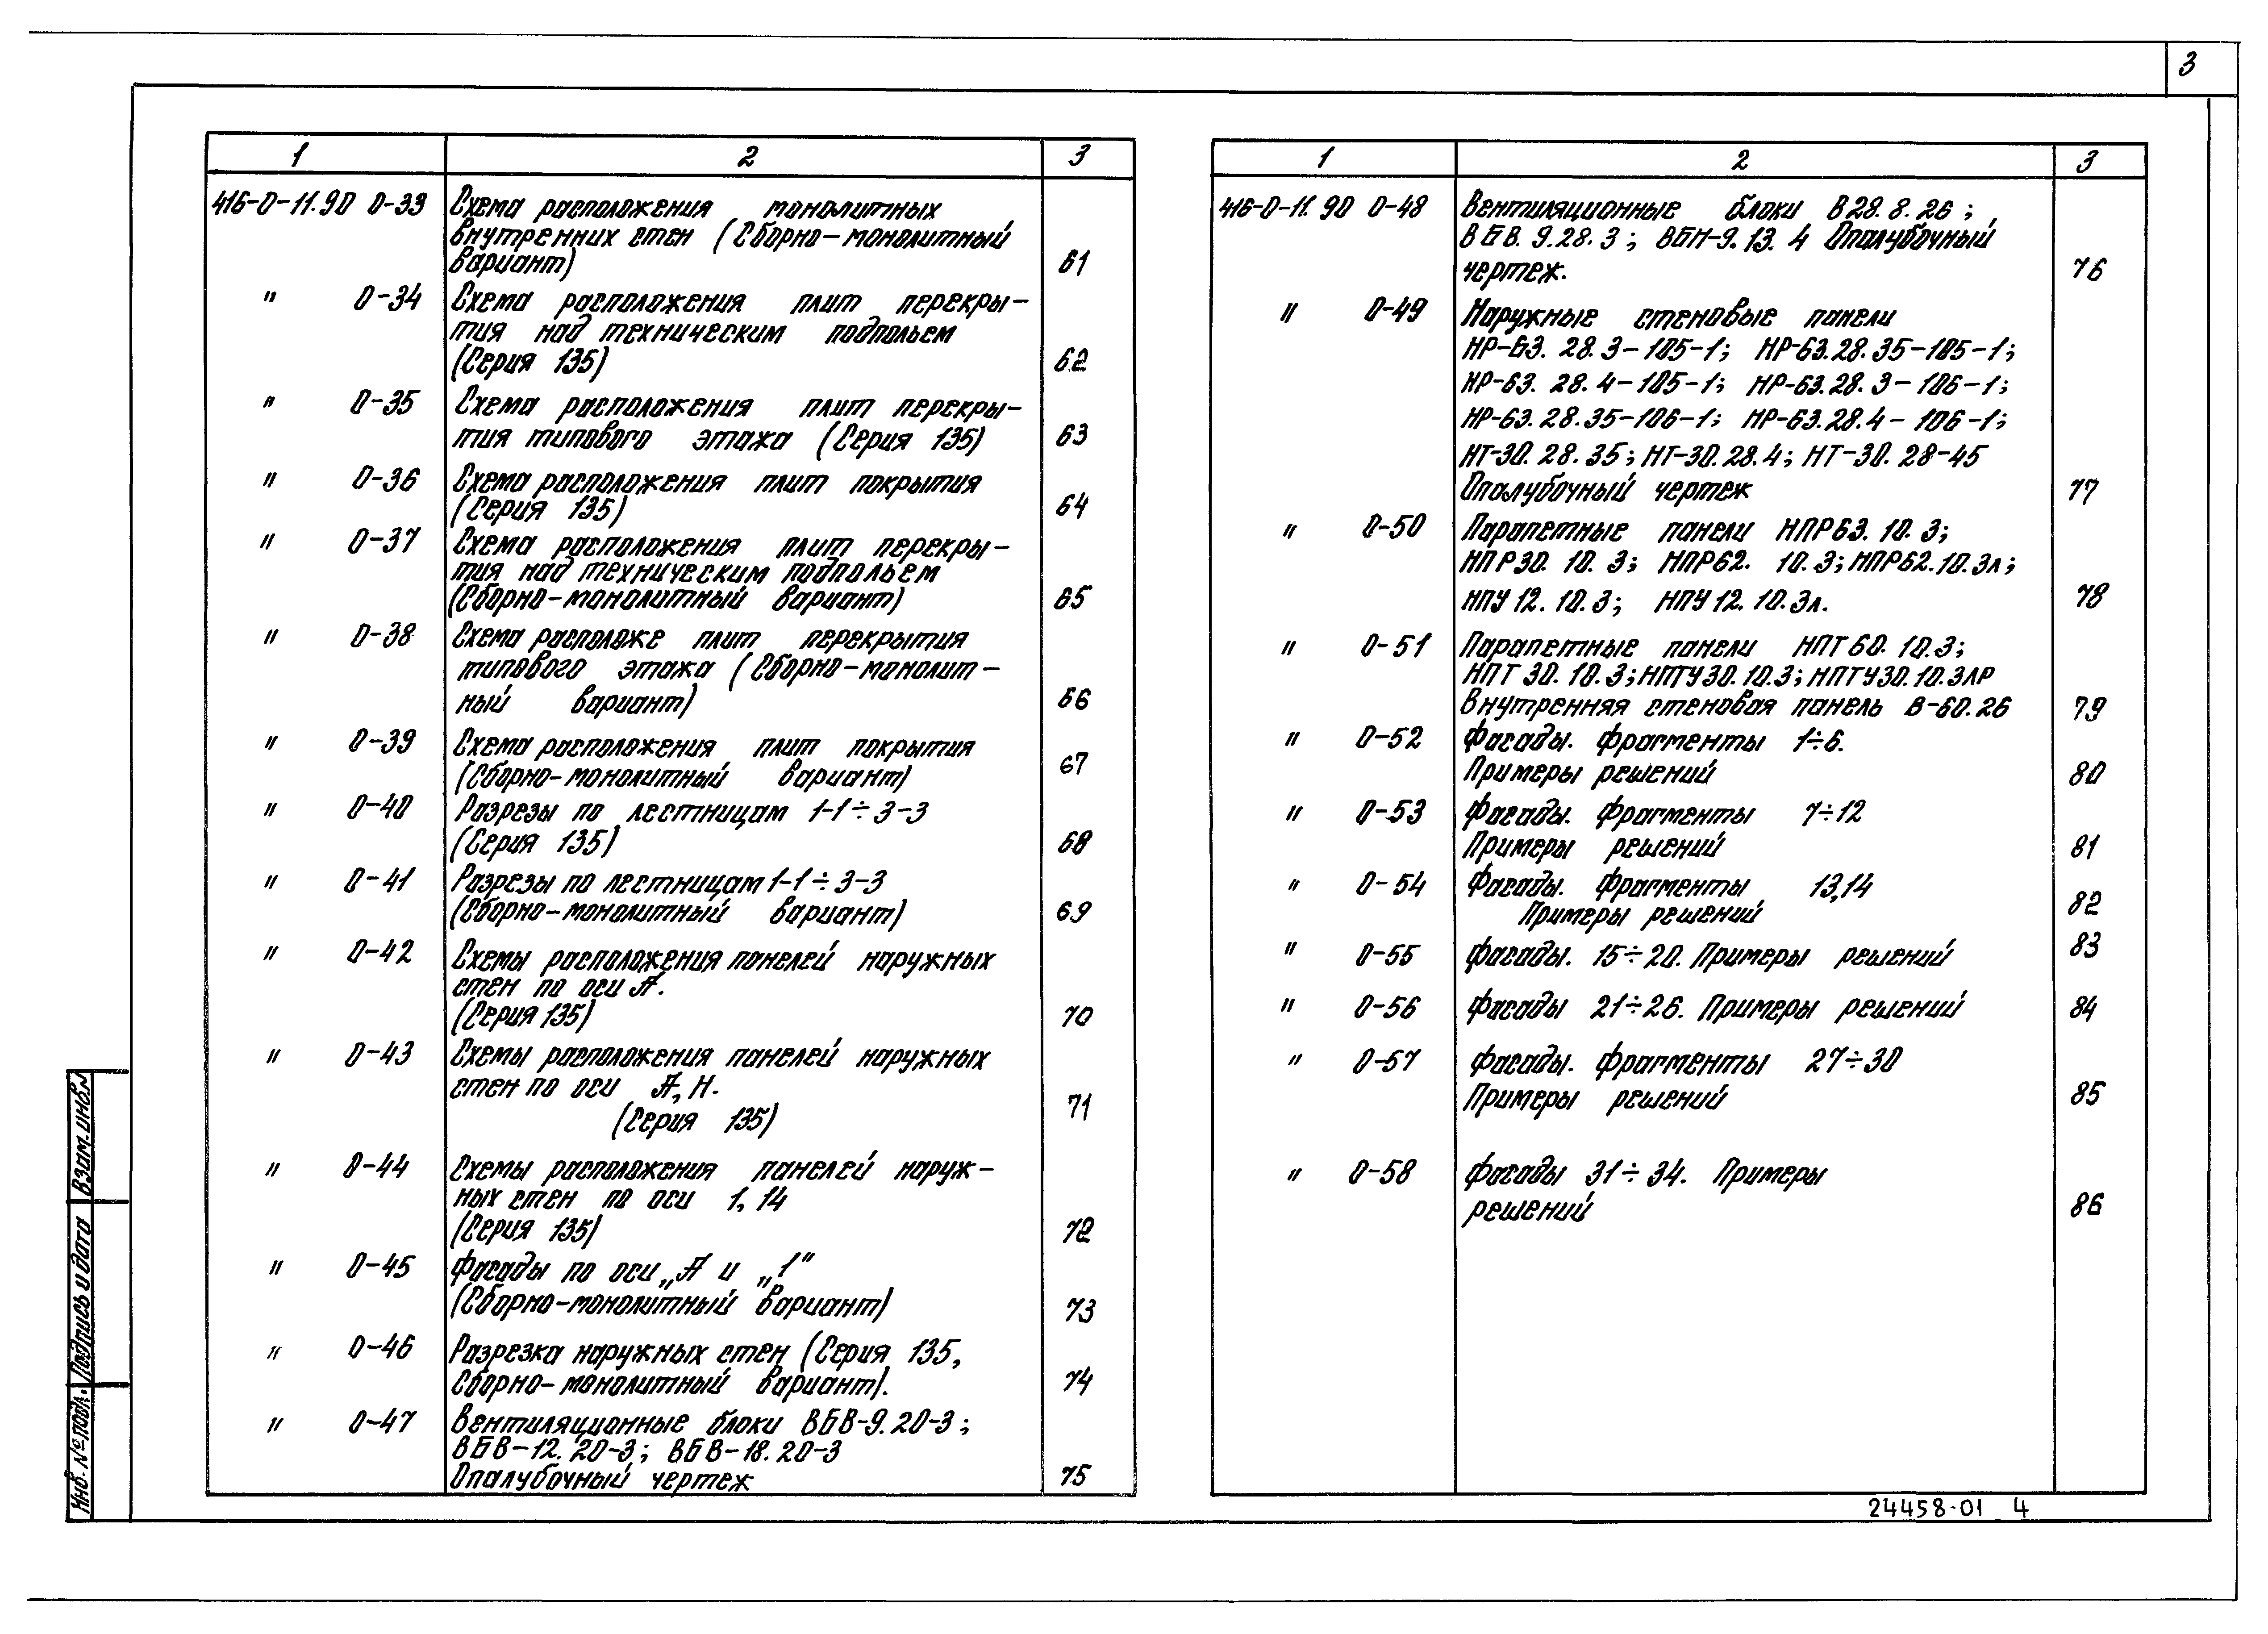 3
1 2 3
416-0-11.90 0-33 Схема расположения монолитных
внутренних стен (Сборно-монолитный
вариант) 61
" 0-34 Схема расположения плит перекры-
тия над техническим подпольем
(Серия 135) 62
" 0-35 Схема расположения плит перекры-
тия типового этажа (Серия 135) 63
" 0-36 Схема расположения плит покрытия
(Серия 135) 64
" 0-37 Схема расположения плит перекры-
тия над техническим подпольем
(Сборно-монолитный вариант) 65
" 0-38 Схема расположе плит перекрытия
типового этажа (Сборно-монолит-
ный вариант) 66
" 0-39 Схема расположения плит покрытия
(Сборно-монолитный вариант) 67
" 0-40 Разрезы по лестницам 1-1÷3-3
(Серия 135) 68
" 0-41 Разрезы по лестницам 1-1÷3-3
(Сборно-монолитный вариант) 69
" 0-42 Схемы расположения панелей наружных
стен по оси А.
(Серия 135) 70
" 0-43 Схемы расположения панелей наружных
стен по оси А, Н.
(Серия 135) 71
" 0-44 Схемы расположения панелей наруж-
ных стен по оси 1, 14
(Серия 135) 72
" 0-45 Фасады по оси „А и „1"
(Сборно-монолитный вариант) 73
" 0-46 Разрезка наружных стен (Серия 135,
Сборно-монолитный вариант). 74
" 0-47 Вентиляционные блоки ВБВ-9.20-3;
ВБВ-12.20-3; ВБВ-18.20-3
Опалубочный чертеж 75
1 2 3
416-0-11.90 0-48 Вентиляционные блоки В28.8.26;
ВБВ.9.28.3; ВБН-9.13.4 Опалубочный
чертеж. 76
" 0-49 Наружные стеновые панели
НР-63.28.3-105-1; НР-63.28.35-105-1;
НР-63.28.4-105-1; НР-63.28.3-106-1;
НР-63.28.35-106-1; НР-63.28.4-106-1;
НТ-30.28.35; НТ-30.28.4; НТ-30.28-45
Опалубочный чертеж 77
" 0-50 Парапетные панели НПР63.10.3;
НПР30.10.3; НПР62.10.3; НПР62.10.3л;
НПУ12.10.3; НПУ12.10.3л. 78
" 0-51 Парапетные панели НПТ60.10.3;
НПТ30.10.3; НПТУ30.10.3; НПТУ30.10.3ЛР
Внутренняя стеновая панель В-60.26 79
" 0-52 Фасады. Фрагменты 1÷6.
Примеры решений 80
" 0-53 Фасады. Фрагменты 7÷12
Примеры решений 81
" 0-54 Фасады. Фрагменты 13,14
Примеры решений 82
" 0-55 Фасады. 15÷20. Примеры решений 83
" 0-56 Фасады 21÷26. Примеры решений 84
" 0-57 Фасады. Фрагменты 27÷30
Примеры решений 85
" 0-58 Фасады 31÷34. Примеры
решений 86
Инв. № подл. Подпись и дата Взам. инв. №
24458-01 4